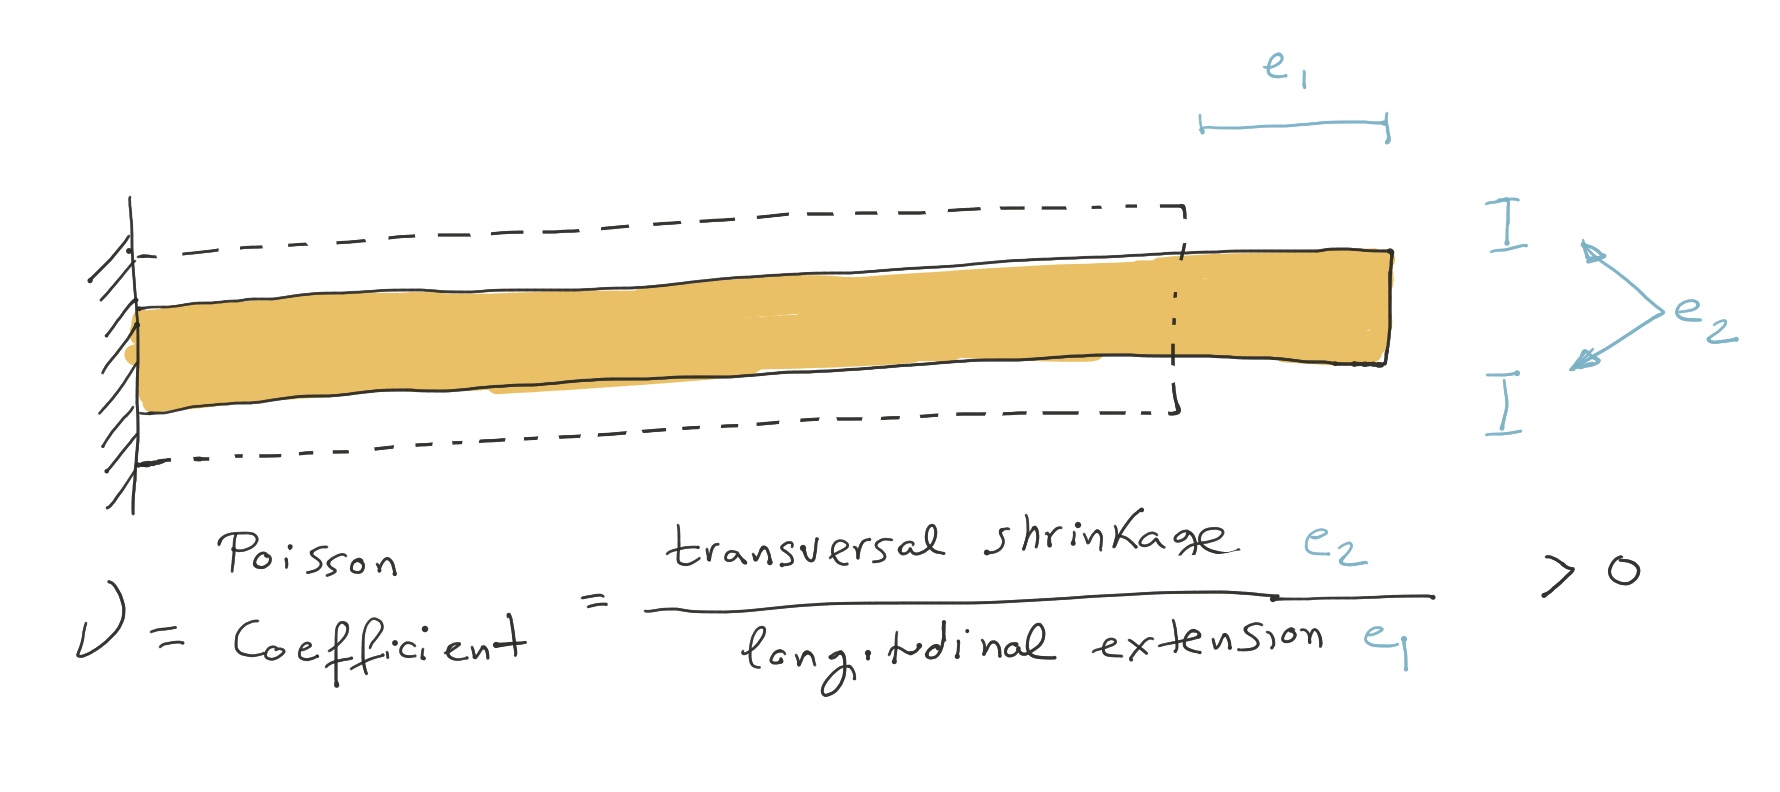 e₁
e₂
ν = Poisson Coefficient = transversal shrinkage e₂ / longitudinal extension e₁ > 0